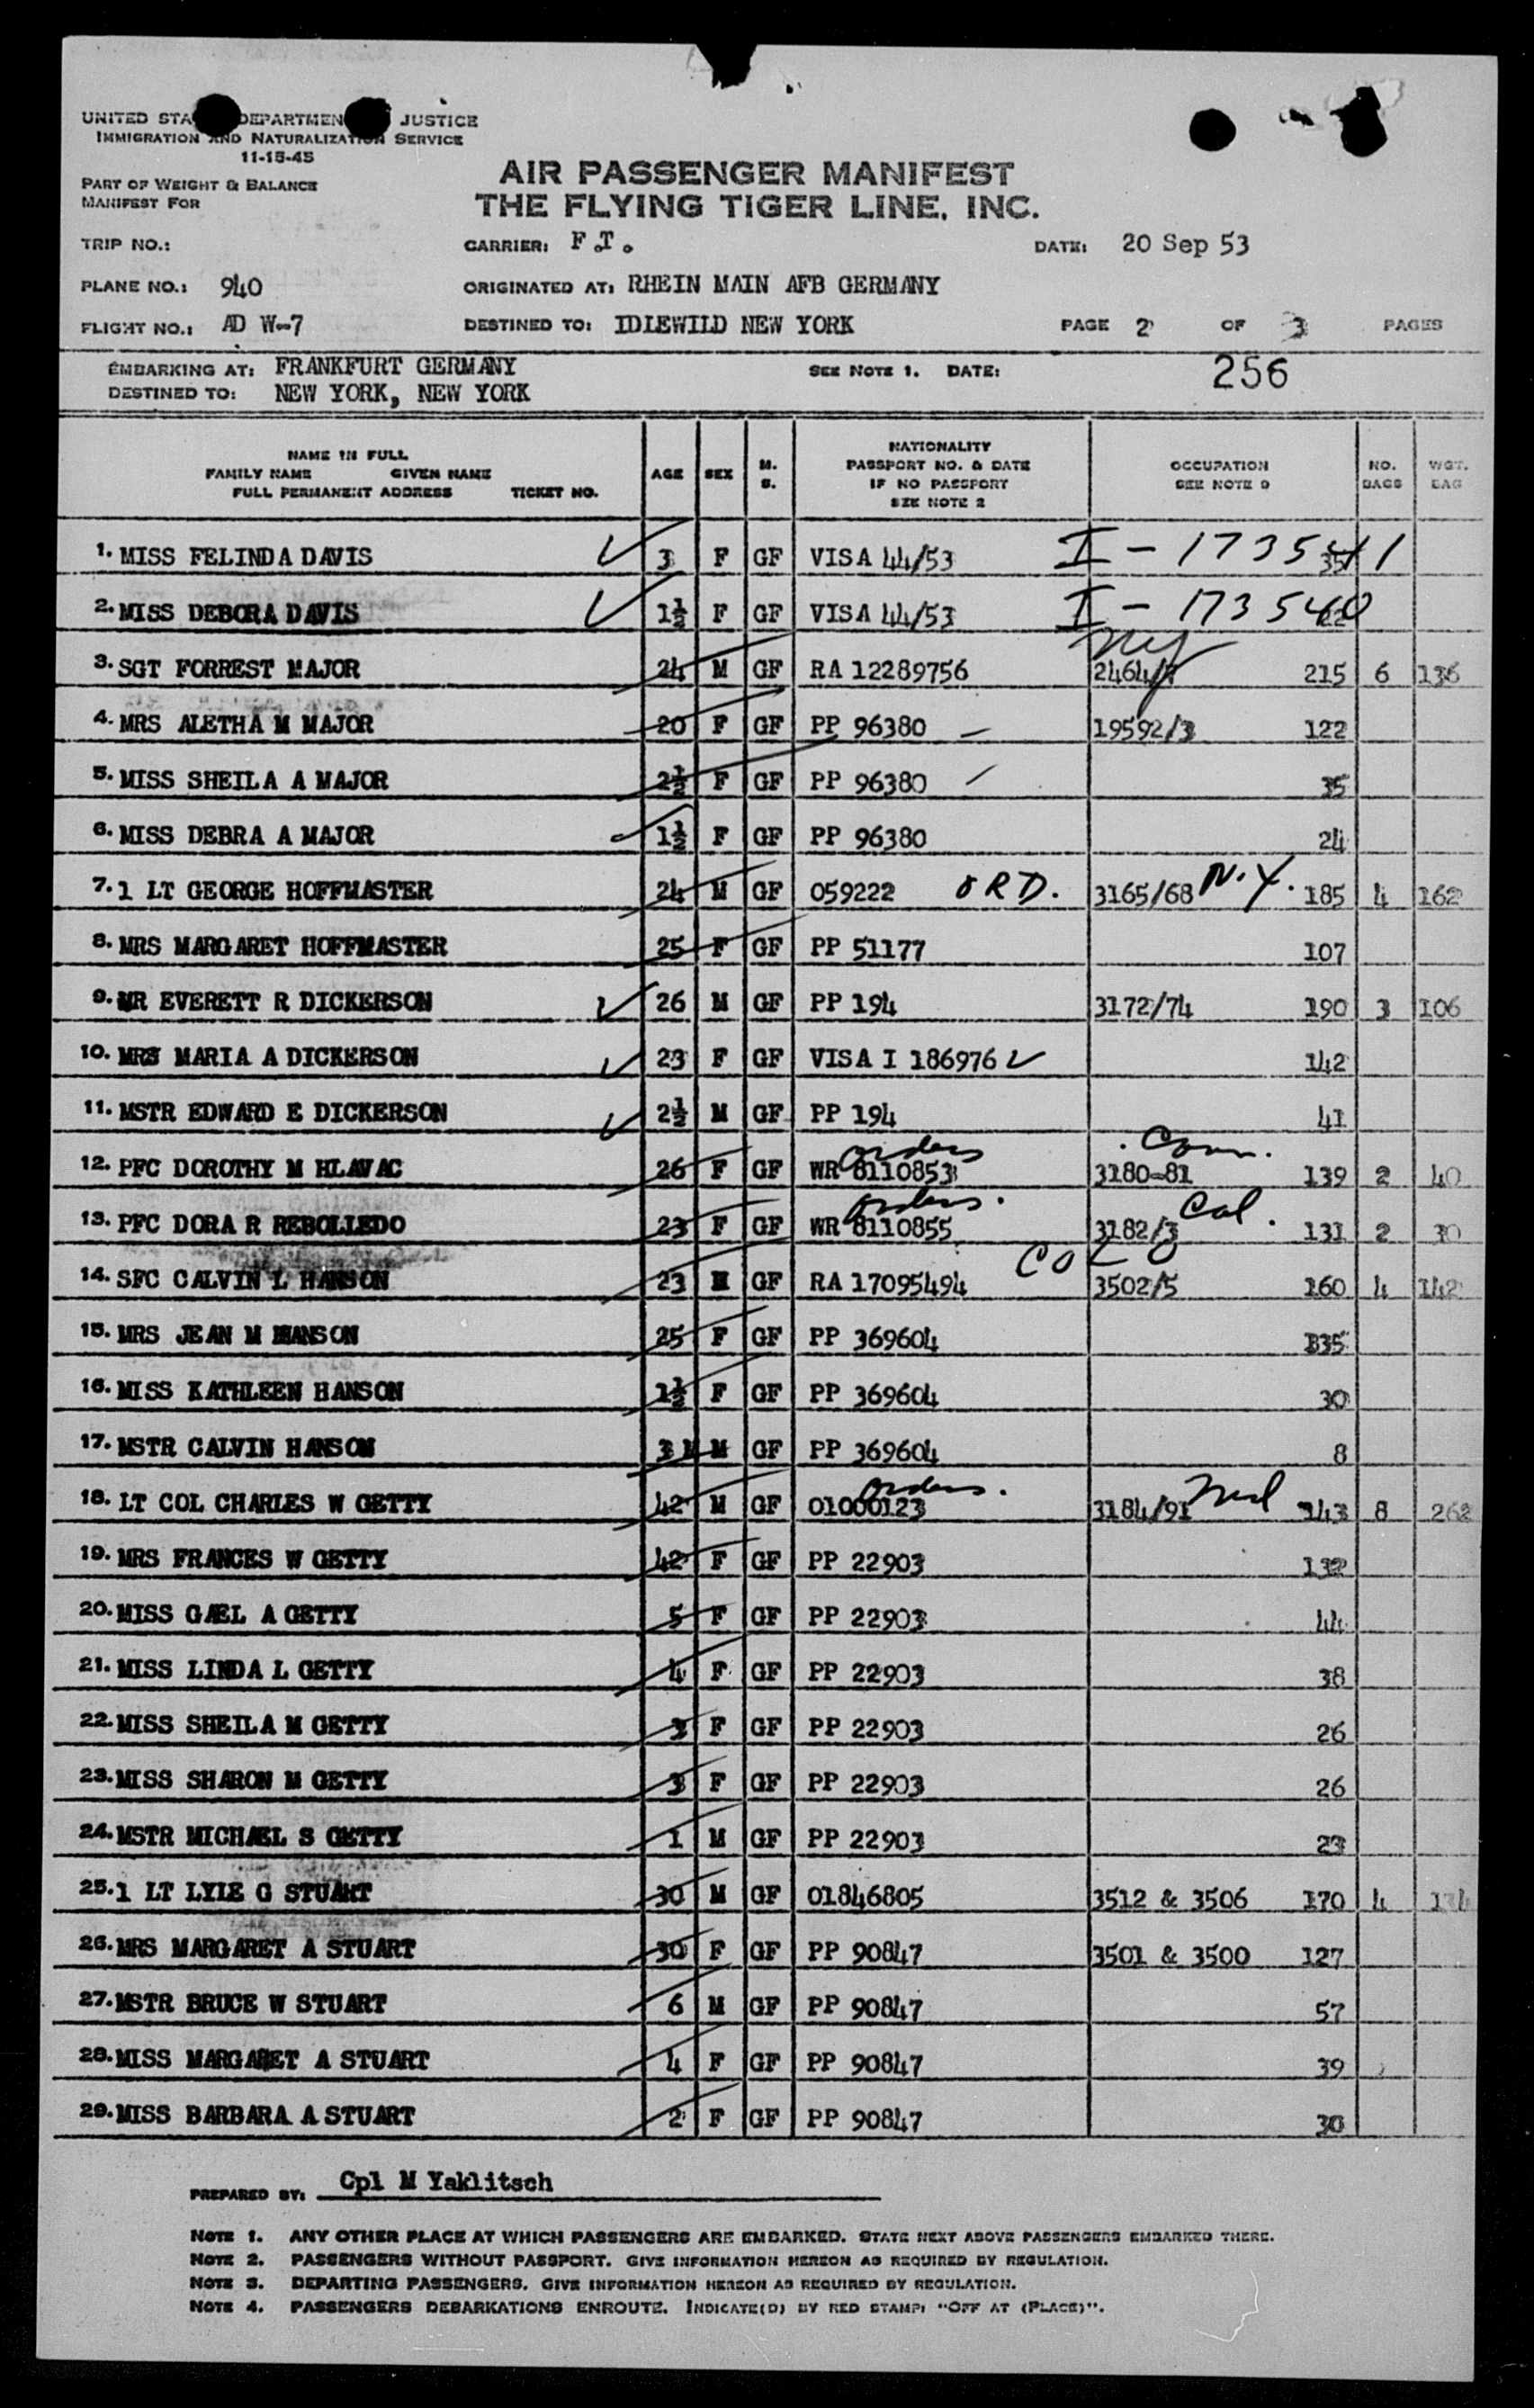 UNITED STA DEPARTMEN JUSTICE
IMMIGRATION AND NATURALIZATION SERVICE
11-15-45
PART OF WEIGHT & BALANCE
MANIFEST FOR
AIR PASSENGER MANIFEST
THE FLYING TIGER LINE, INC.
TRIP NO.: CARRIER: F.T. DATE: 20 Sep 53
PLANE NO.: 940 ORIGINATED AT: RHEIN MAIN AFB GERMANY
FLIGHT NO.: AD W-7 DESTINED TO: IDLEWILD NEW YORK PAGE 2 OF 3 PAGES
EMBARKING AT: FRANKFURT GERMANY SEE NOTE 1. DATE: 256
DESTINED TO: NEW YORK, NEW YORK
NAME IN FULL
FAMILY NAME GIVEN NAME
FULL PERMANENT ADDRESS TICKET NO.
AGE SEX M. S.
NATIONALITY
PASSPORT NO. & DATE
IF NO PASSPORT
SEE NOTE 2
OCCUPATION
SEE NOTE 9
NO. BAGS
WGT. BAG
1. MISS FELINDA DAVIS 3 F GF VISA 44/53 I-173541 35
2. MISS DEBORA DAVIS 1½ F GF VISA 44/53 I-173540
NY
3. SGT FORREST MAJOR 24 M GF RA 12289756 2464/ 215 6 136
4. MRS ALETHA M MAJOR 20 F GF PP 96380 19592/3 122
5. MISS SHEILA A MAJOR 2½ F GF PP 96380 35
6. MISS DEBRA A MAJOR 1½ F GF PP 96380 24
7. 1 LT GEORGE HOFFMASTER 24 M GF 059222 ORD. 3165/68 N.Y. 185 4 162
8. MRS MARGARET HOFFMASTER 25 F GF PP 51177 107
9. MR EVERETT R DICKERSON 26 M GF PP 194 3172/74 190 3 106
10. MRS MARIA A DICKERSON 23 F GF VISA I 186976 142
11. MSTR EDWARD E DICKERSON 2½ M GF PP 194 41
orders Conn.
12. PFC DOROTHY M HLAVAC 26 F GF WR 8110853 3180-81 139 2 40
orders. Cal.
13. PFC DORA R REBOLLEDO 23 F GF WR 8110855 3182/3 131 2 30
COLO
14. SFC CALVIN L HANSON 23 M GF RA 17095494 3502/5 160 4 142
15. MRS JEAN M HANSON 25 F GF PP 369604 135
16. MISS KATHLEEN HANSON 1½ F GF PP 369604 30
17. MSTR CALVIN HANSON 3 M M GF PP 369604 8
orders.
18. LT COL CHARLES W GETTY 42 M GF 01000123 3184/91 Md 143 8 262
19. MRS FRANCES W GETTY 42 F GF PP 22903 132
20. MISS GAEL A GETTY 5 F GF PP 22903 44
21. MISS LINDA L GETTY 4 F GF PP 22903 38
22. MISS SHEILA M GETTY 3 F GF PP 22903 26
23. MISS SHARON M GETTY 3 F GF PP 22903 26
24. MSTR MICHAEL S GETTY 1 M GF PP 22903 23
25. 1 LT LYLE G STUART 30 M GF 01846805 3512 & 3506 170 4
26. MRS MARGARET A STUART 30 F GF PP 90847 3501 & 3500 127
27. MSTR BRUCE W STUART 6 M GF PP 90847 57
28. MISS MARGARET A STUART 4 F GF PP 90847 39
29. MISS BARBARA A STUART 2 F GF PP 90847 30
PREPARED BY: Cpl M Yaklitsch
NOTE 1. ANY OTHER PLACE AT WHICH PASSENGERS ARE EMBARKED. STATE NEXT ABOVE PASSENGERS EMBARKED THERE.
NOTE 2. PASSENGERS WITHOUT PASSPORT. GIVE INFORMATION HEREON AS REQUIRED BY REGULATION.
NOTE 3. DEPARTING PASSENGERS. GIVE INFORMATION HEREON AS REQUIRED BY REGULATION.
NOTE 4. PASSENGERS DEBARKATIONS ENROUTE. INDICATE(D) BY RED STAMP: "OFF AT (PLACE)".